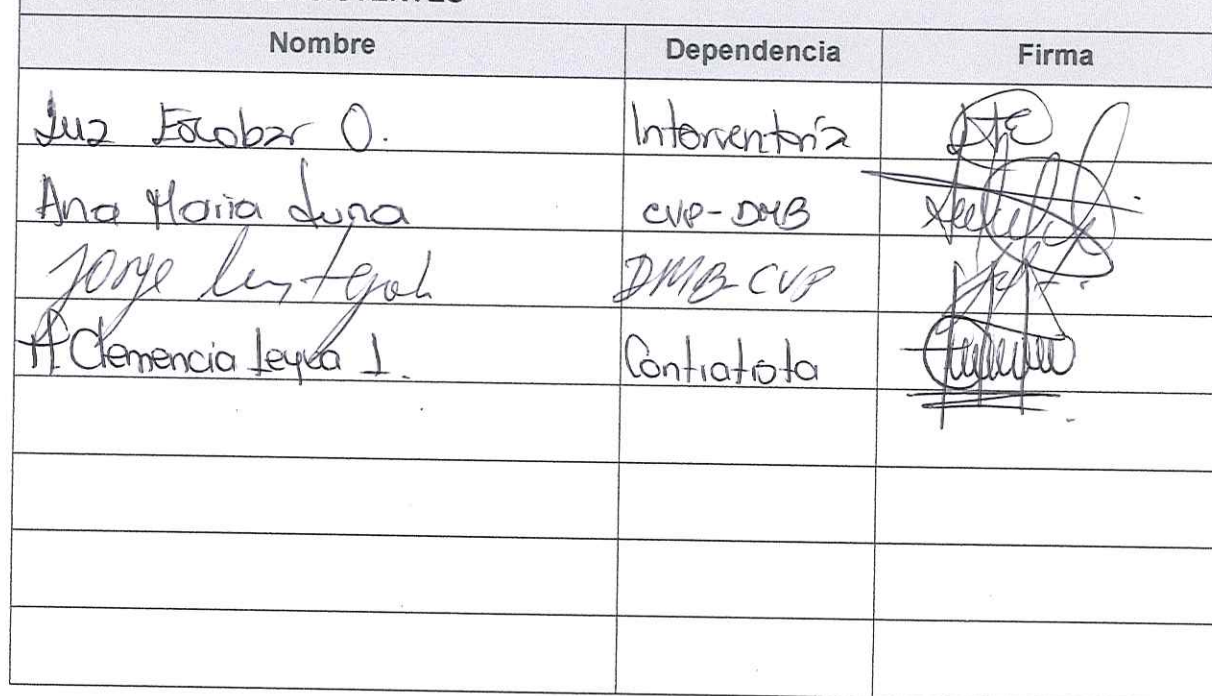 Nombre Dependencia Firma
Luz Escobar O. Interventoría
Ana Maria Luna CVP-DMB
Jorge DMB-CVP
Clemencia Leyva L. Contratista